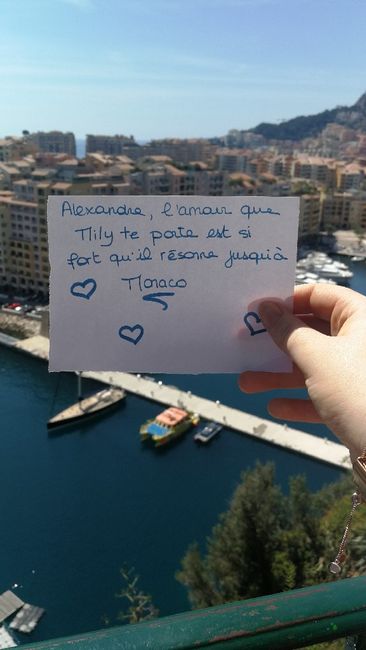 Alexandre, l'amour que
Mily te porte est si
fort qu'il résonne jusqu'à
Monaco